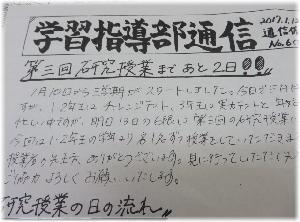 学習指導部通信
2017.1.1
通信
No.60
第三回研究授業まであと2日!!
1月10日から三学期がスタートしました。今日で三日
すが、1・2年生はチャレンジテスト、3年生は実力テストと
忙しい中ですが、明日13日の6限に第三回の研究授業
今回は1・2年生の 各1名ずつ授業をしていただきま
授業者の先生方、ありがとうございます。見に行っていただく
ご協力よろしくお願いいたします。
究授業の日の流れ